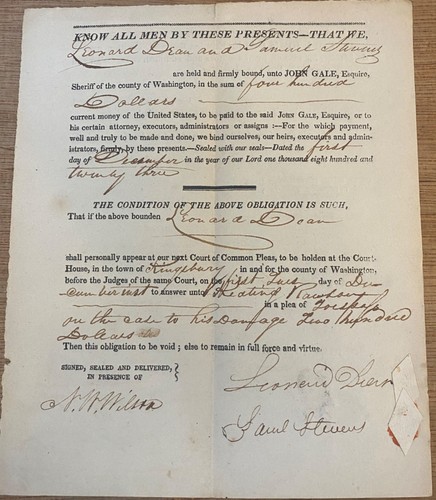 KNOW ALL MEN BY THESE PRESENTS—THAT WE,
Leonard Dean and Samuel Stevens
are held and firmly bound, unto JOHN GALE, Esquire,
Sheriff of the county of Washington, in the sum of four hundred
Dollars
current money of the United States, to be paid to the said JOHN GALE, Esquire, or to
his certain attorney, executors, administrators or assigns:—For the which payment,
well and truly to be made and done, we bind ourselves, our heirs, executors and admin-
istrators, firmly, by these presents.—Sealed with our seals—Dated the first
day of December in the year of our Lord one thousand eight hundred and
twenty three
THE CONDITION OF THE ABOVE OBLIGATION IS SUCH,
That if the above bounden Leonard Dean
shall personally appear at our next Court of Common Pleas, to be holden at the Court-
House, in the town of Kingsbury in and for the county of Washington,
before the Judges of the same Court, on the first Tues day of De-
cember inst to answer unto Keating
in a plea of Trespass
on the case to his Damage Two hundred
Dollars
Then this obligation to be void; else to remain in full force and virtue.
SIGNED, SEALED AND DELIVERED,
IN PRESENCE OF
N. W. Wilson
Leonard Dean
Saml Stevens